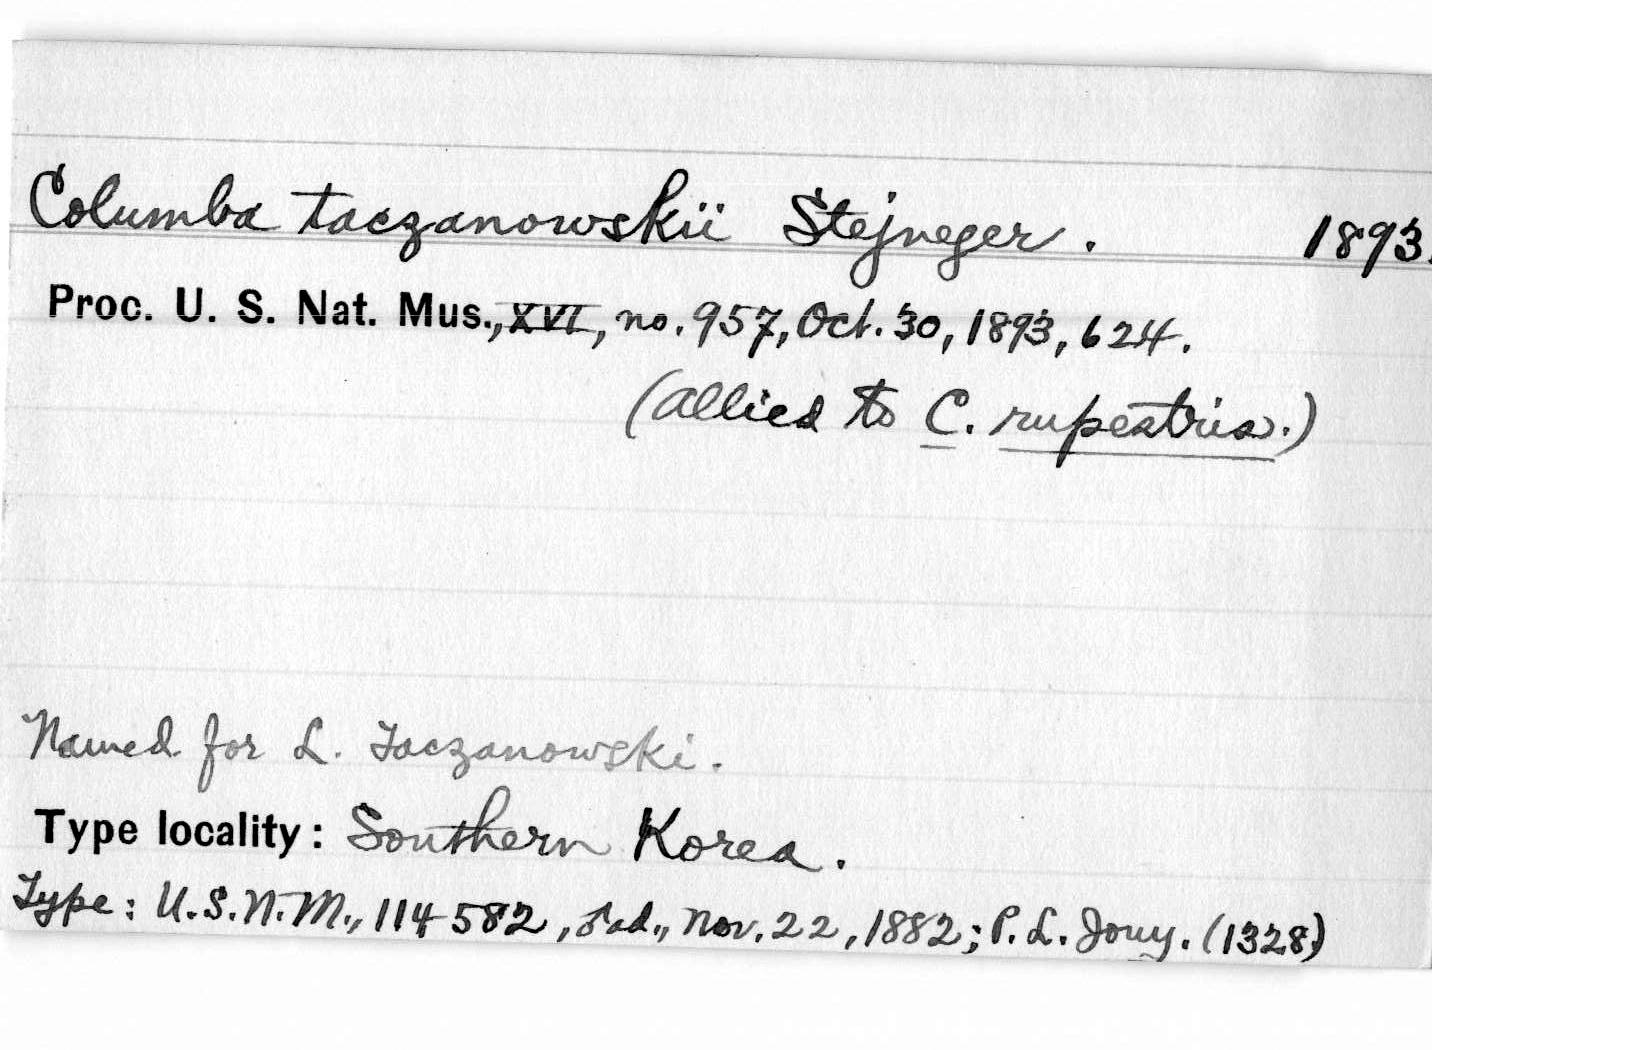 Columba taczanowskii Stejneger. 1893.
Proc. U. S. Nat. Mus., XVI, no. 957, Oct. 30, 1893, 624.
(allied to C. rupestris.)
Named for L. Taczanowski.
Type locality: Southern Korea.
Type: U.S.N.M., 114582, ad., Nov. 22, 1882; P. L. Jouy. (1328)